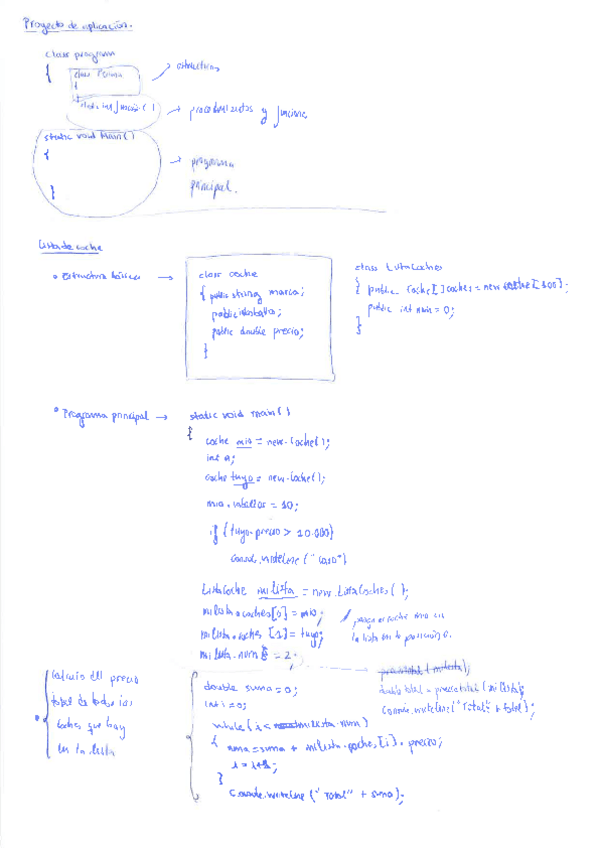 Proyecto de aplicación.
class programa
{
class Persona
{
}
static int funcion()
→ estructuras
→ procedimientos y funciones
static void Main()
{
}
→ programa
principal.
Lista de coche
• Estructura básica →
class coche
{ public string marca;
public int
public double precio;
}
class ListaCoches
{ public Coche[] coches = new coche[100];
public int num = 0;
}
• Programa principal →
static void main()
{
coche mio = new.Coche();
int n;
coche tuyo = new.Coche();
mio. = 10;
if (tuyo.precio > 10.000)
console.writeline ("caro")
ListaCoche milista = new.ListaCoches();
milista.coches[0] = mio;
milista.coches [1] = tuyo;
milista.num = 2;
// pongo el coche mio en
la lista en la posición 0.
preciototal (milista);
double total = preciototal (milista);
Console.writeline("Total" + total);
• cálculo del precio
total de todos los
coches que hay
en la lista
double suma = 0;
int i = 0;
while (i < milista.num)
{ suma = suma + milista.coches[i].precio;
i = i+1;
}
Console.writeline ("Total" + suma);